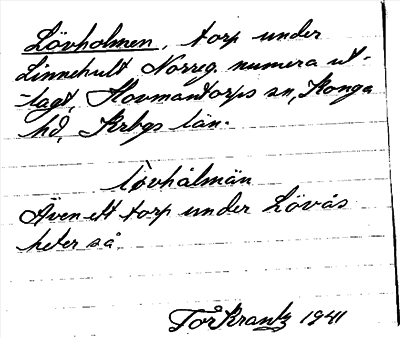 Lövholmen, torp under
Linnehult Norreg. numera ut-
-lagt, Hovmantorps sn, Konga
hd, Krbgs län.
lövhålmän
Även ett torp under Lövås
heter så.
Tor Krantz 1941